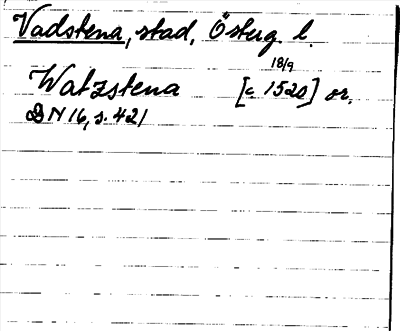 Vadstena, stad, Österg. l.
18/9
Watzstena [c 1520] or.
DN 16, s. 421